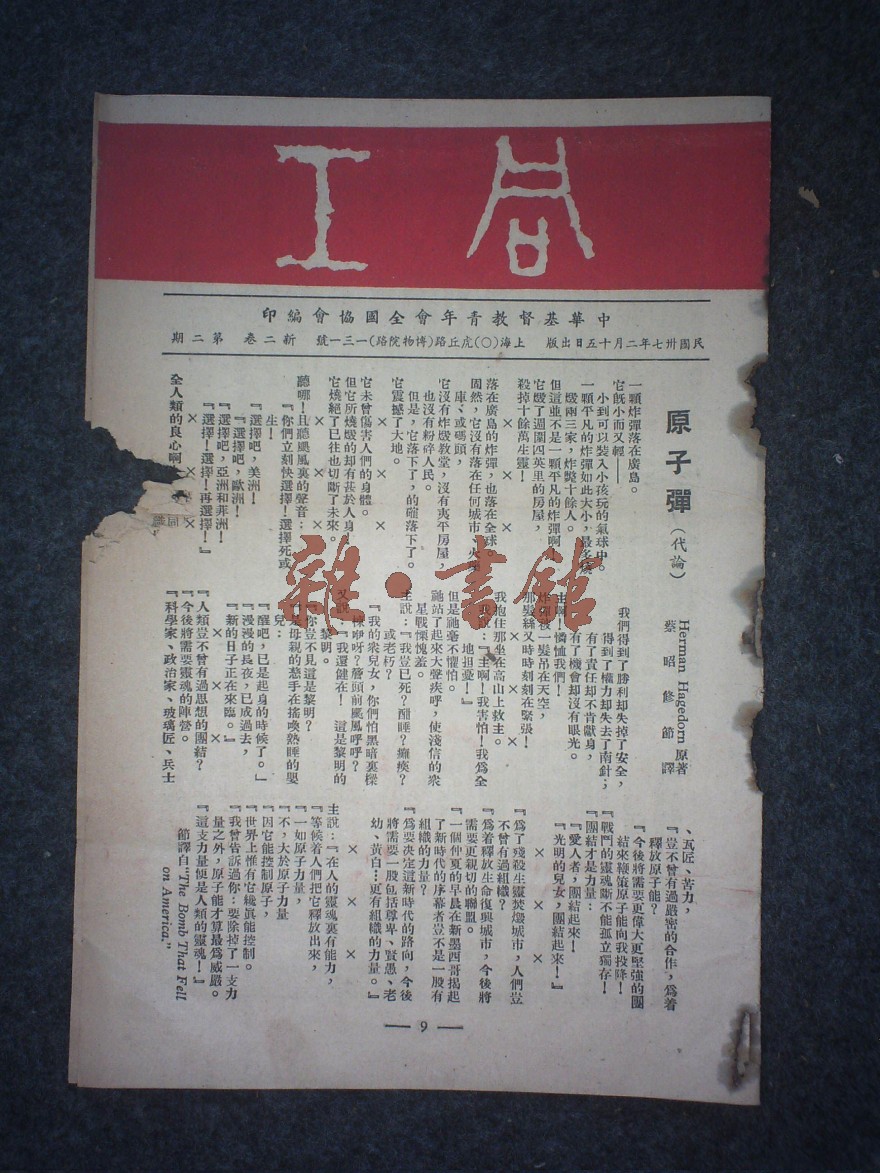 同工
中華基督教青年會全國協會編印
民國卅七年二月十五日出版 上海(○)虎丘路(博物院路)一三一號 新二卷 第二期
原子彈(代論)
Herman Hagedorn 原著
蔡昭修節譯
一顆炸彈落在廣島。
它旣小而又輕——
小到可以裝入小孩玩的氣球中。
一顆平凡的炸彈如此大小,最多
燬兩三家,炸斃十餘人。
但這並不是一顆平凡的炸彈啊!
它燬了週圍四英里的房屋,
殺掉十餘萬生靈!
× × × ×
落在廣島的炸彈,也落在全球。
固然,它沒有落在任何城市、火藥
庫、或碼頭,
它沒有炸燬教堂,沒有夷平房屋,
也沒有粉碎人民。
但是,它落下了,的確落下了。
它震撼了大地。
× × × ×
它未曾傷害人們的身體。
但它所燒燬的却有甚於人身,
它燒絕了已往也切斷了未來。
× × × ×
聽哪!且聽颶風裏的聲音:
『你們立刻快選擇!選擇死或
生!
『選擇吧,美洲!
『選擇吧,歐洲!
『選擇吧,亞洲和非洲!
『選擇!選擇!再選擇!』
× × ×
全人類的良心啊
我們得到了勝利却失掉了安全,
得到了權力却失去了南針;
有了責任却不肯獻身,
有了機會却沒有眼光。
主啊!憐恤我們!
炸彈被一髮吊在天空,
那髮絲又時時刻刻在緊張!
× × × ×
我抱住那坐在高山上救主。
我說:『主啊!我害怕!我爲全
地担憂!』
但是祂毫不懼怕。
祂站了起來大聲疾呼,使淺信的衆
星戰慄愧羞。
主說:『我豈已死?酣睡?癱瘓?
或老朽?
『我的衆兒女,你們怕黑暗裏樑
棟咿呀?簷頭前颶風呼呼?
又說:『我還健在! 這是黎明的
黎明。
『你豈不見這是黎明?
『是母親的慈手在搖喚熟睡的嬰
兒:
『醒吧,已是起身的時候了。』
『漫漫的長夜,已成過去,
『新的日子正在來臨。』
× × × ×
『人類豈不曾有過思想的團結?
『今後將需要靈魂的陣營。
『科學家、政治家、玻璃匠、兵士
、瓦匠、苦力,
『豈不曾有過嚴密的合作,爲着
釋放原子能?
『今後將需要更偉大更堅強的團
結來鞭策原子能向我投降!
『戰鬥的靈魂斷不能孤立獨存!
『團結才是力量:
『愛人者,團結起來!
『光明的兒女,團結起來!』
× × × ×
『爲了殘殺生靈焚燬城市,人們豈
不曾有過組織?
『爲着釋放生命復興城市,今後將
需要更親切的聯盟。
『一個仲夏的早晨在新墨西哥揭起
了新時代的序幕者豈不是一股有
組織的力量?
『爲要決定這新時代的路向,今後
將需要一股包括尊卑、賢愚、老
幼、黃白…更有組織的力量。』
× × × ×
主說:『在人的靈魂裏有能力,
『等候着人們把它釋放出來,
『一如原子力量,
『不,大於原子力量
『因它能控制原子,
『世界上惟有它纔眞能控制。
『我曾告訴過你:要除掉了一支力
量之外,原子能才算最爲威嚴。
『這支力量便是人類的靈魂!』
節譯自"The Bomb That Fell
on America."
— 9 —
雜·書館